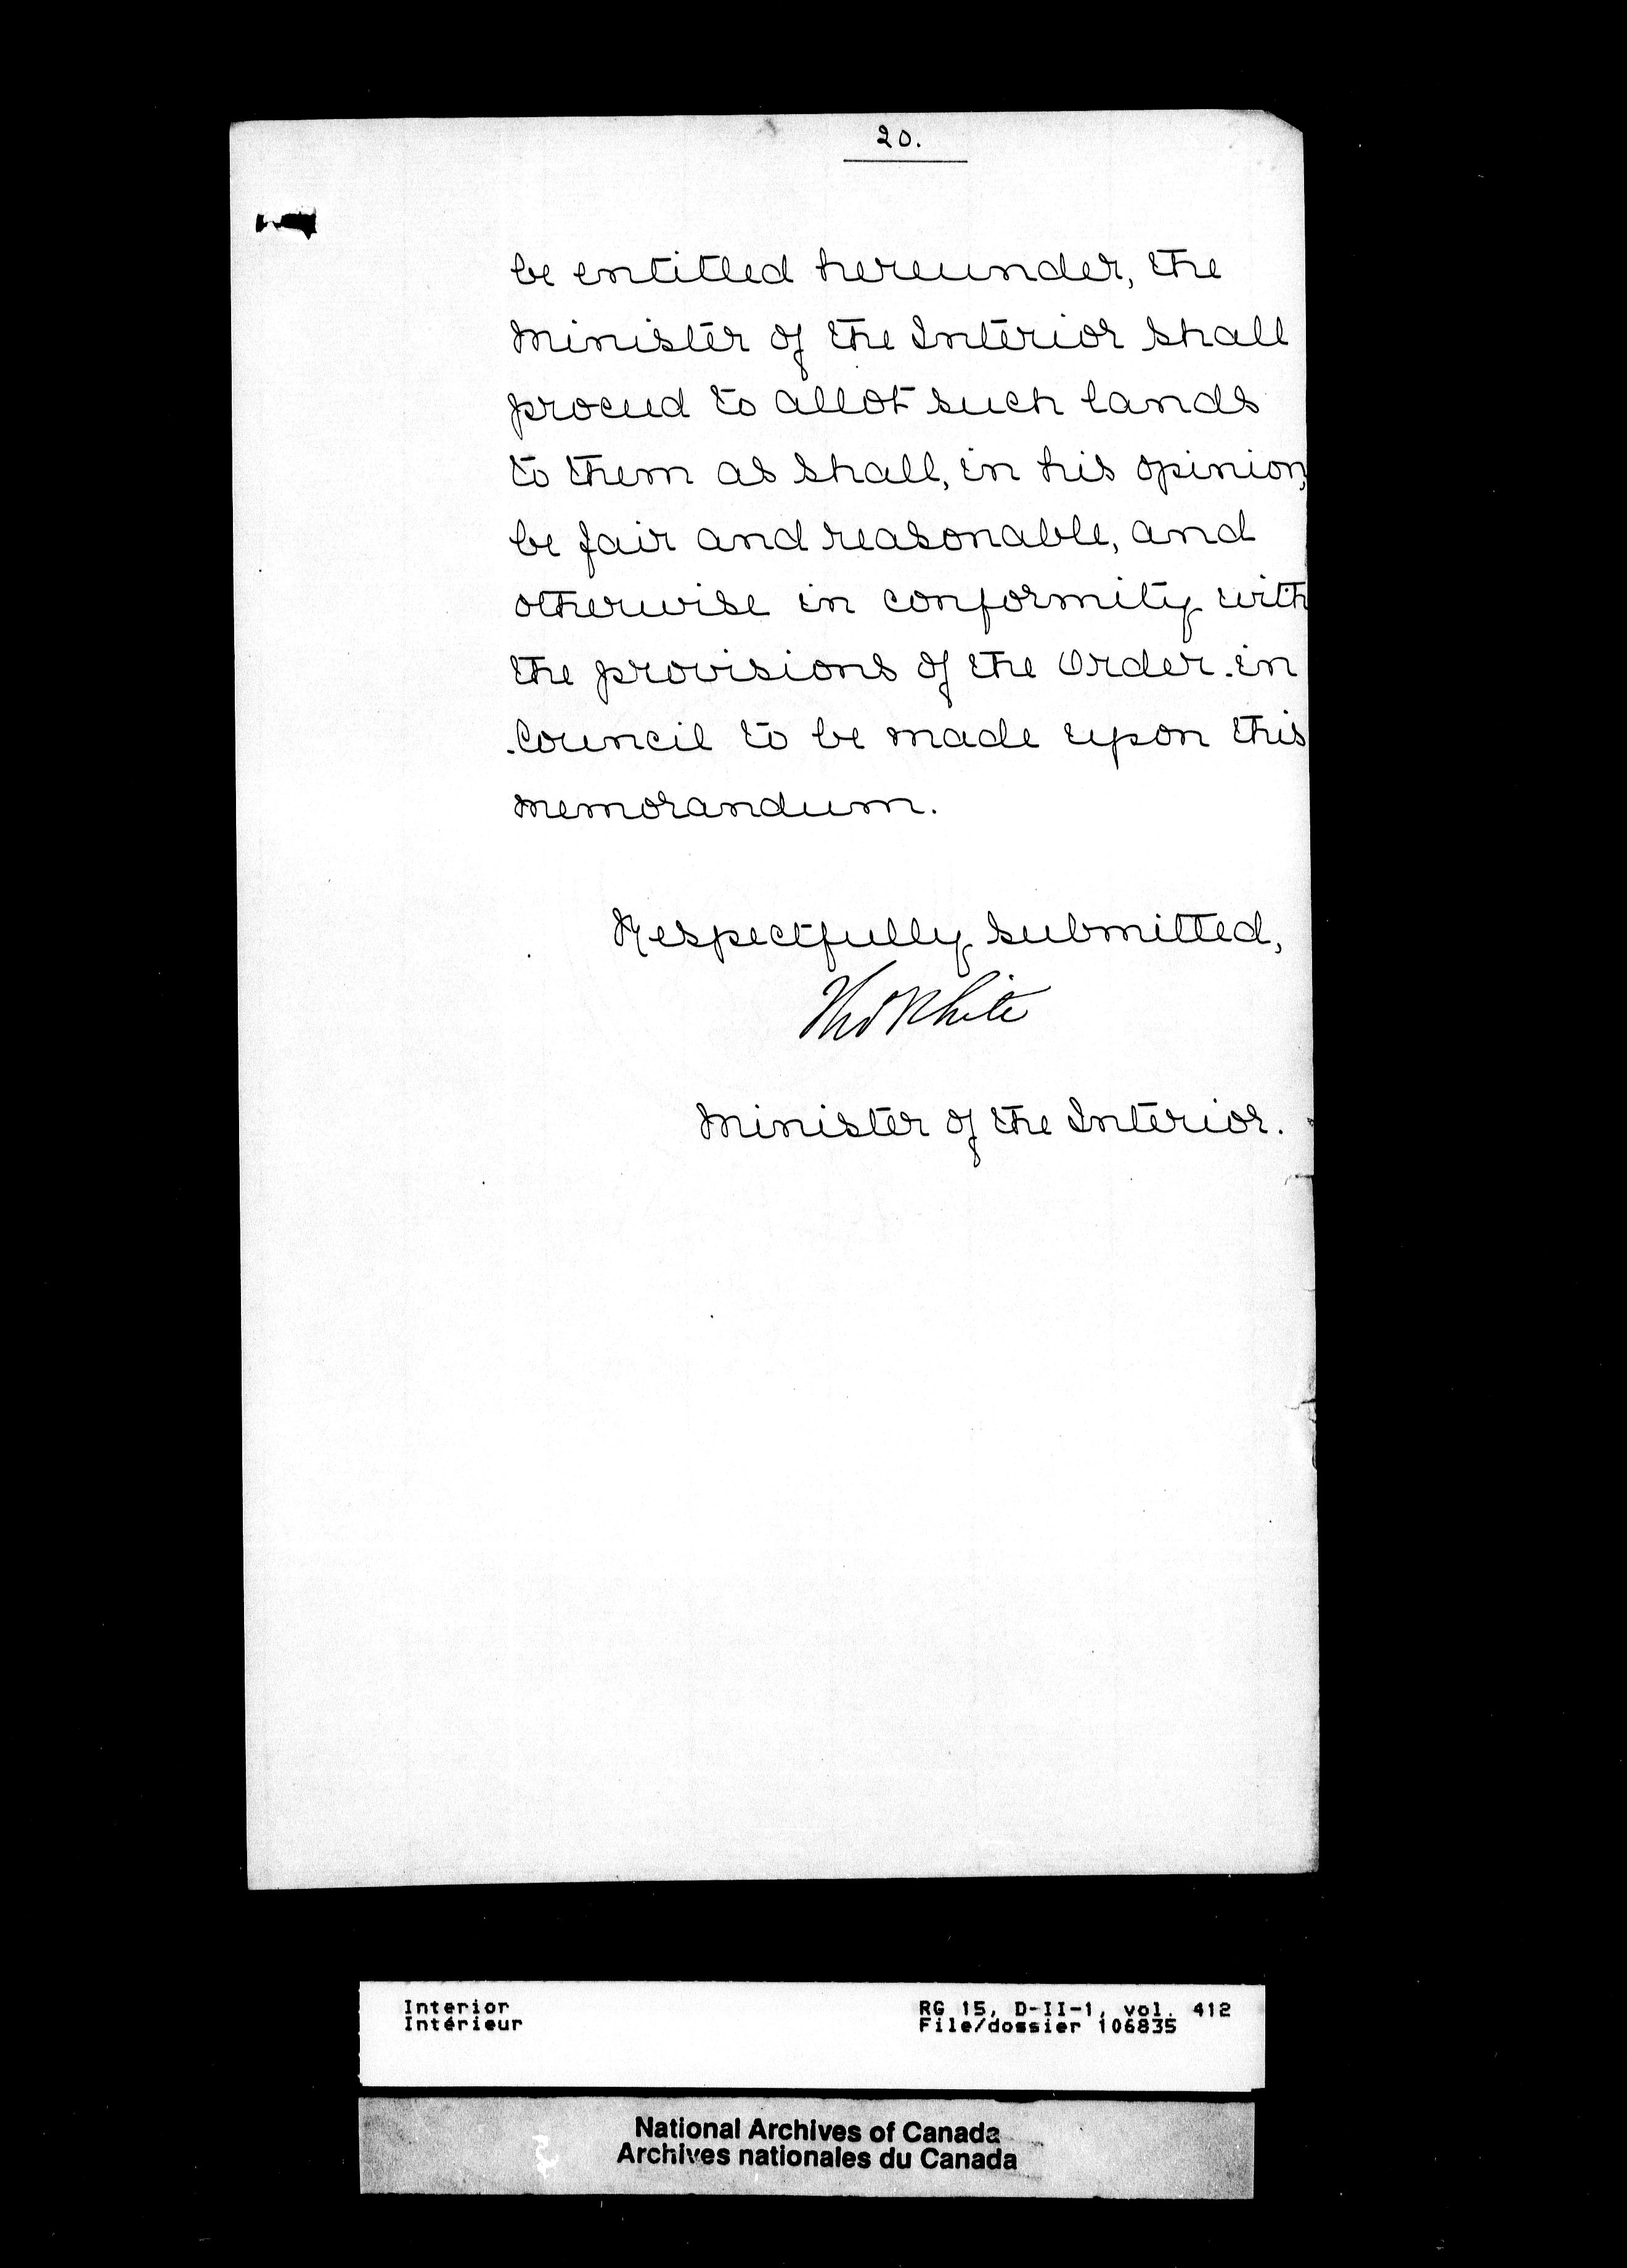 20.
be entitled hereunder, the
Minister of the Interior shall
proceed to allot such lands
to them as shall, in his opinion,
be fair and reasonable, and
otherwise in conformity with
the provisions of the Order in
Council to be made upon this
memorandum.
Respectfully submitted,
Thos White
Minister of the Interior.
Interior
Intérieur
RG 15, D-II-1, vol. 412
File/dossier 106835
National Archives of Canada
Archives nationales du Canada